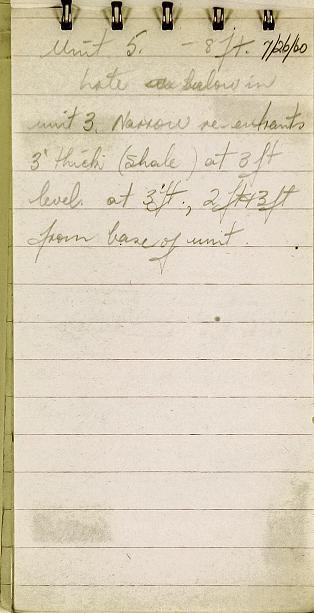 Unit 5. - 8 ft. 7/26/60
below in
unit 3. Narrow re-entrants
3' thick (shale) at 3 ft
level. at 3 ft., 2 ft 3 ft
from base of unit.